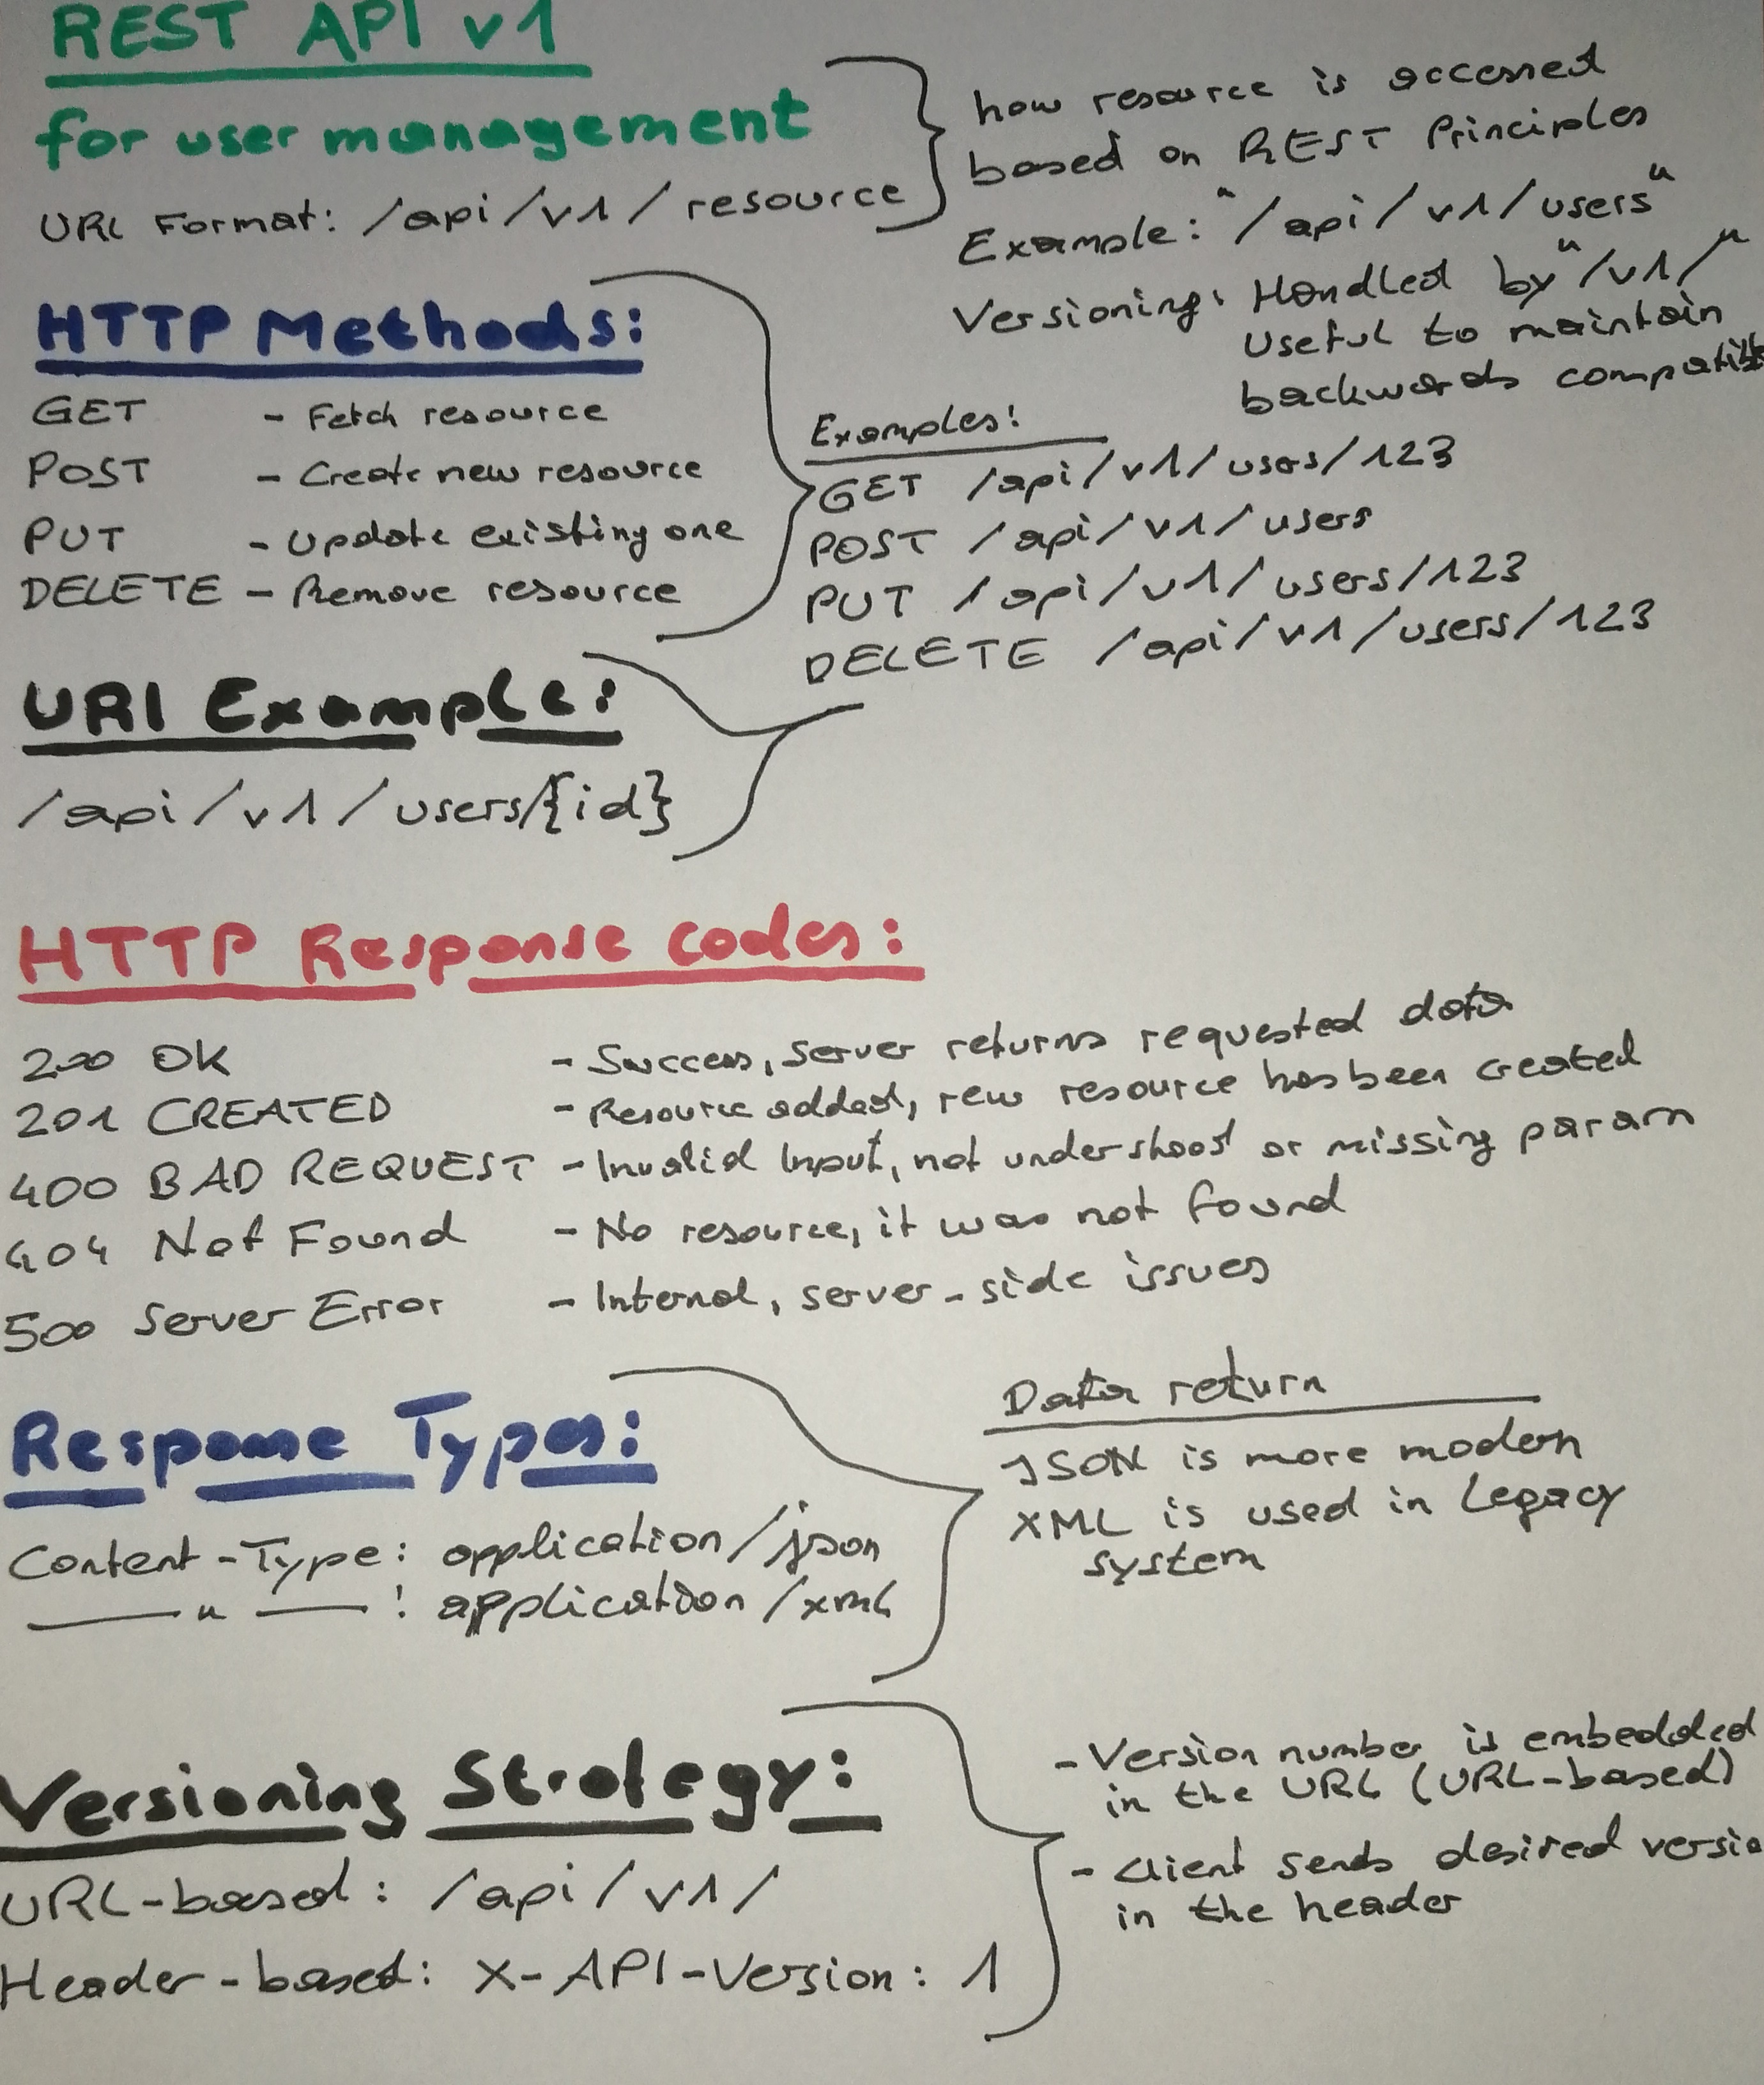 REST API v1
for user management
URL Format: /api/v1/resource
how resource is accessed
based on REST Principles
Example: "/api/v1/users"
Versioning: Handled by "/v1/"
Useful to maintain
backwards
HTTP Methods:
GET - Fetch resource
POST - Create new resource
PUT - Update existing one
DELETE - Remove resource
Examples:
GET /api/v1/users/123
POST /api/v1/users
PUT /api/v1/users/123
DELETE /api/v1/users/123
URI Example:
/api/v1/users/{id}
HTTP Response codes:
200 OK - Success, server returns requested data
201 CREATED - Resource added, new resource has been created
400 BAD REQUEST - Invalid Input, not understood or missing param
404 Not Found - No resource, it was not found
500 Server Error - Internal, server-side issues
Response Types:
Content-Type: application/json
—— " —— : application/xml
Data return
JSON is more modern
XML is used in Legacy
system
Versioning Strategy:
URL-based: /api/v1/
Header-based: X-API-Version: 1
- Version number is embedded
in the URL (URL-based)
- Client sends desired versio
in the header